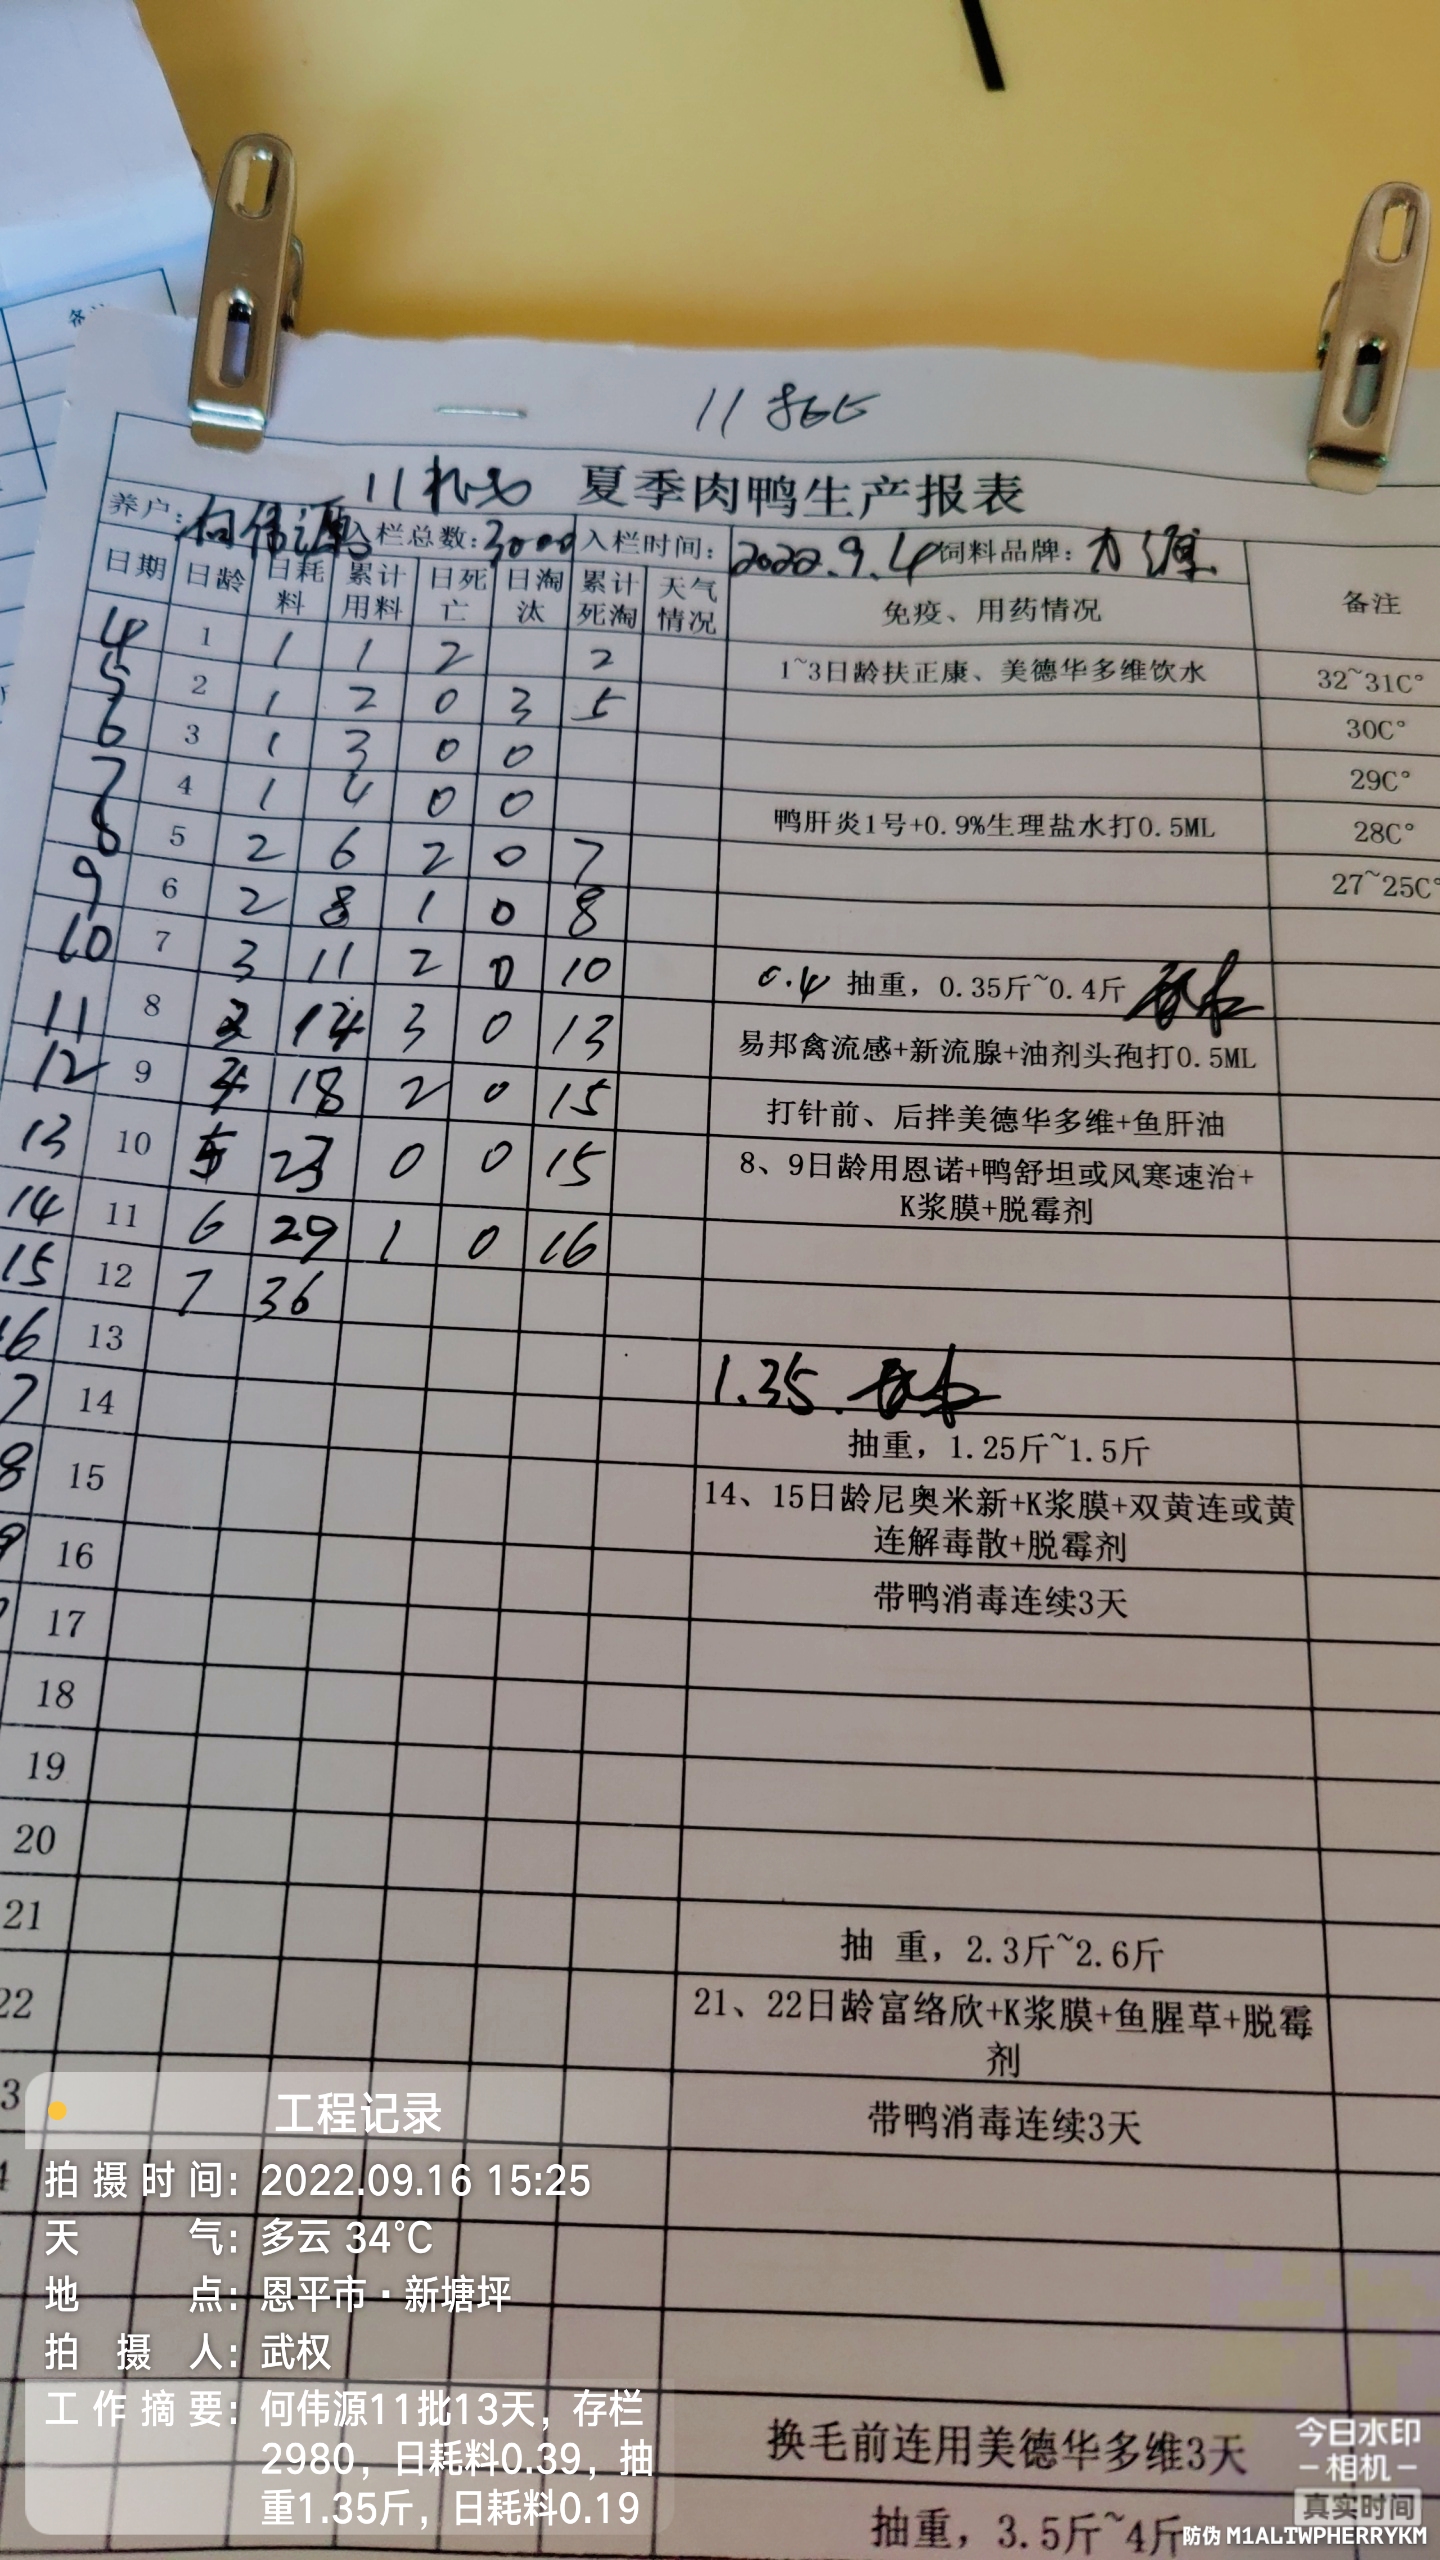 备注
11批
11批 夏季肉鸭生产报表
养户: 何伟源 入栏总数: 3000 入栏时间: 2022.9.4 饲料品牌: 力源
日期 日龄 日耗料 累计用料 日死亡 日淘汰 累计死淘 天气情况 免疫、用药情况 备注
4 1 1 1 2 2 1~3日龄扶正康、美德华多维饮水 32~31C°
5 2 1 2 0 3 5 30C°
6 3 1 3 0 0 29C°
7 4 1 4 0 0 鸭肝炎1号+0.9%生理盐水打0.5ML 28C°
8 5 2 6 2 0 7 27~25C°
9 6 2 8 1 0 8
10 7 3 11 2 0 10 0.4 抽重，0.35斤~0.4斤
11 8 3 14 3 0 13 易邦禽流感+新流腺+油剂头孢打0.5ML
12 9 4 18 2 0 15 打针前、后拌美德华多维+鱼肝油
13 10 5 23 0 0 15 8、9日龄用恩诺+鸭舒坦或风寒速治+
K浆膜+脱霉剂
14 11 6 29 1 0 16
15 12 7 36
16 13
1.35.
7 14 抽重，1.25斤~1.5斤
8 15 14、15日龄尼奥米新+K浆膜+双黄连或黄
连解毒散+脱霉剂
9 16 带鸭消毒连续3天
17
18
19
20
21 抽 重，2.3斤~2.6斤
22 21、22日龄富络欣+K浆膜+鱼腥草+脱霉
剂
3 带鸭消毒连续3天
4
换毛前连用美德华多维3天
抽重，3.5斤~4斤
工程记录
拍摄时间: 2022.09.16 15:25
天气: 多云 34°C
地点: 恩平市·新塘坪
拍摄人: 武权
工作摘要: 何伟源11批13天，存栏
2980，日耗料0.39，抽
重1.35斤，日耗料0.19
今日水印
-相机-
真实时间
防伪 M1ALTWPHERRYKM